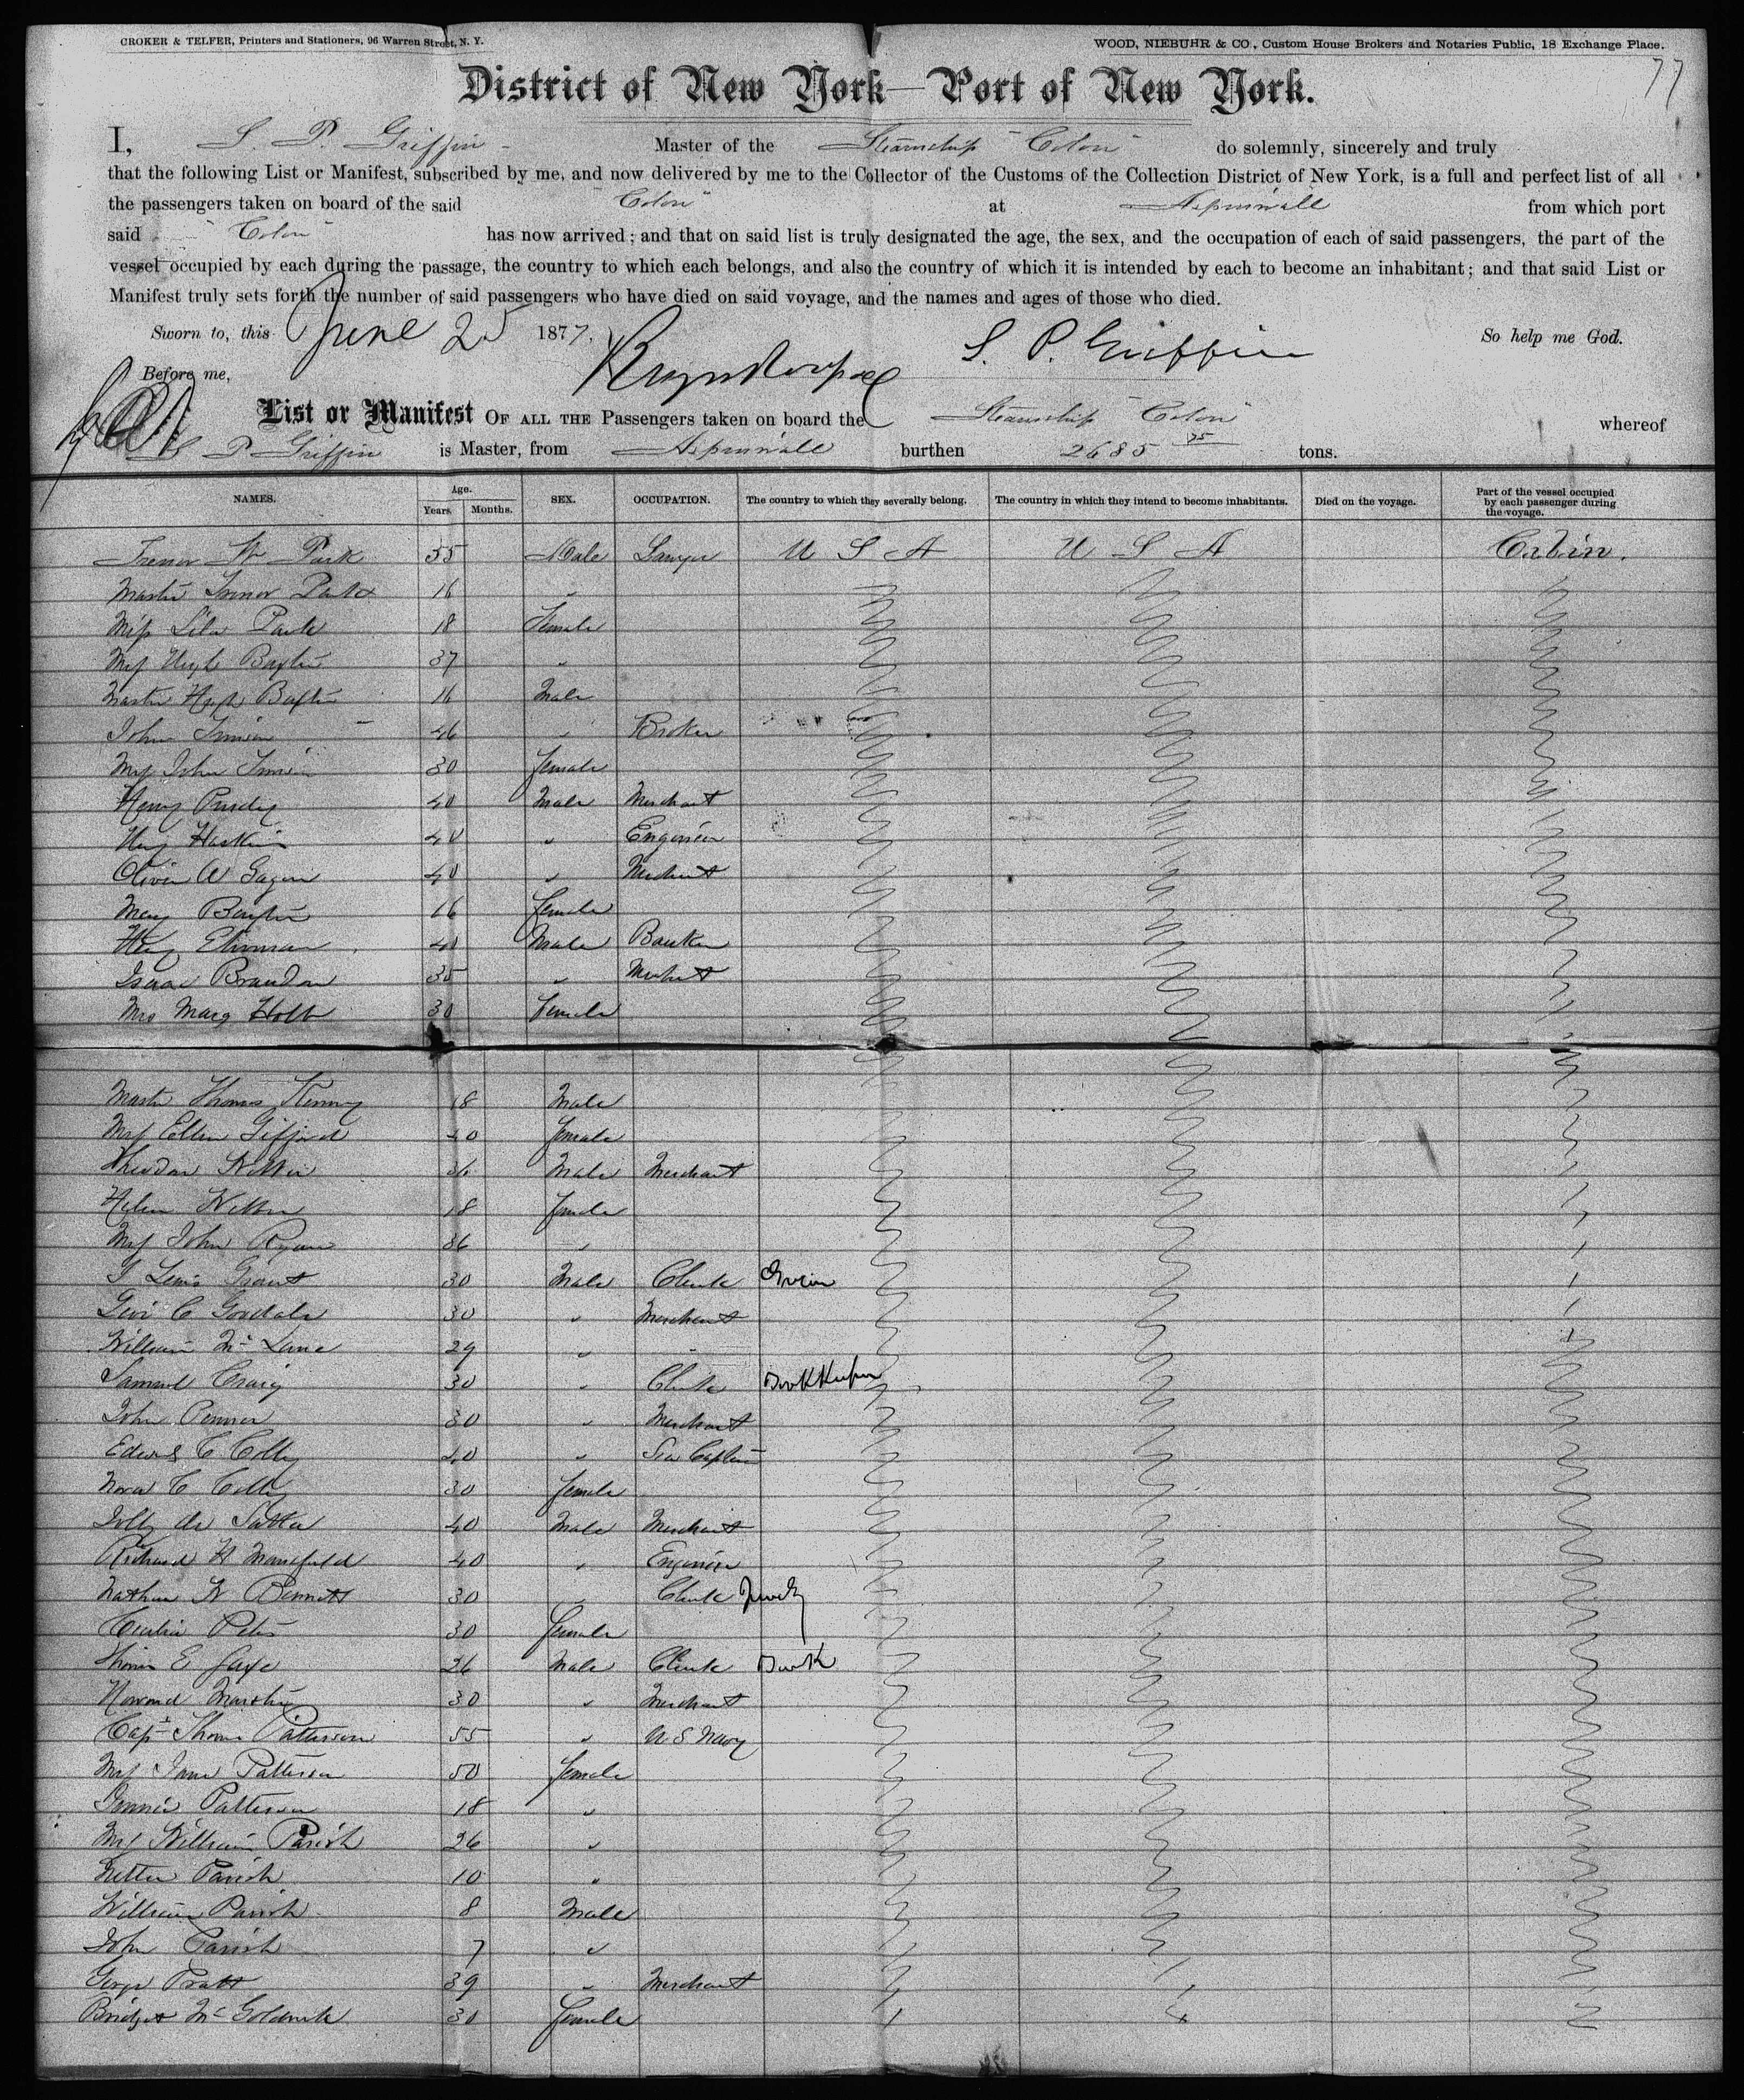 CROKER & TELFER, Printers and Stationers, 96 Warren Street, N. Y.
WOOD, NIEBUHR & CO., Custom House Brokers and Notaries Public, 18 Exchange Place.
77
District of New York—Port of New York.
I, S. P. Griffin Master of the Steamship "Colon" do solemnly, sincerely and truly
that the following List or Manifest, subscribed by me, and now delivered by me to the Collector of the Customs of the Collection District of New York, is a full and perfect list of all
the passengers taken on board of the said "Colon" at Aspinwall from which port
said "Colon" has now arrived; and that on said list is truly designated the age, the sex, and the occupation of each of said passengers, the part of the
vessel occupied by each during the passage, the country to which each belongs, and also the country of which it is intended by each to become an inhabitant; and that said List or
Manifest truly sets forth the number of said passengers who have died on said voyage, and the names and ages of those who died.
Sworn to, this June 25 1877, S. P. Griffin So help me God.
Before me,
List or Manifest OF ALL THE Passengers taken on board the Steamship "Colon" whereof
S P Griffin is Master, from Aspinwall burthen 2685 75 tons.
NAMES. Age. Years. Months. SEX. OCCUPATION. The country to which they severally belong. The country in which they intend to become inhabitants. Died on the voyage. Part of the vessel occupied by each passenger during the voyage.
Trenor W Park 55 Male Lawyer U S A U S A Cabin.
Master Trenor Park 16 "
Miss Lila Park 18 Female
Mrs Hugh Baxter 37 "
Master Hugh Baxter 16 Male
John 46 " Broker
Mrs John 30 female
Henry Purdy 40 Male Merchant
Henry Haskins 40 " Engineer
Oliver W 40 " Merchant
Mary Baxter 16 female
Henry Ehrman 40 Male Banker
Isaac Brandon 35 " Merchant
Mrs Mary Holt 30 female
Master Thomas 18 Male
Mrs Ellen Gifford 40 female
Theodore 36 Male Merchant
Helen 18 female
Mrs John Ryan 36 "
Lewis Grant 30 Male Clerk
Levi C Goodale 30 " Merchant
William Mc Lane 29 " "
Samuel Craig 30 " Clerk Book Keeper
John Penner 30 " Merchant
Edward C Colby 40 " Sea Captain
Nora C Colby 30 female
de 40 Male Merchant
Richard H Mansfield 40 " Engineer
Nathan W Bennett 30 " Clerk
Cecilia Peters 30 female
Thomas E 26 Male Clerk
Howard Martin 30 " Merchant
Capt Thomas Patterson 55 " U S Navy
Mrs Jane Patterson 50 female
Jennie Patterson 18 "
Mrs William Parish 26 "
Nettie Parish 10 "
William Parish 8 Male
John Parish 7 "
George Pratt 39 " Merchant
Bridget Mc Goldrick 30 female